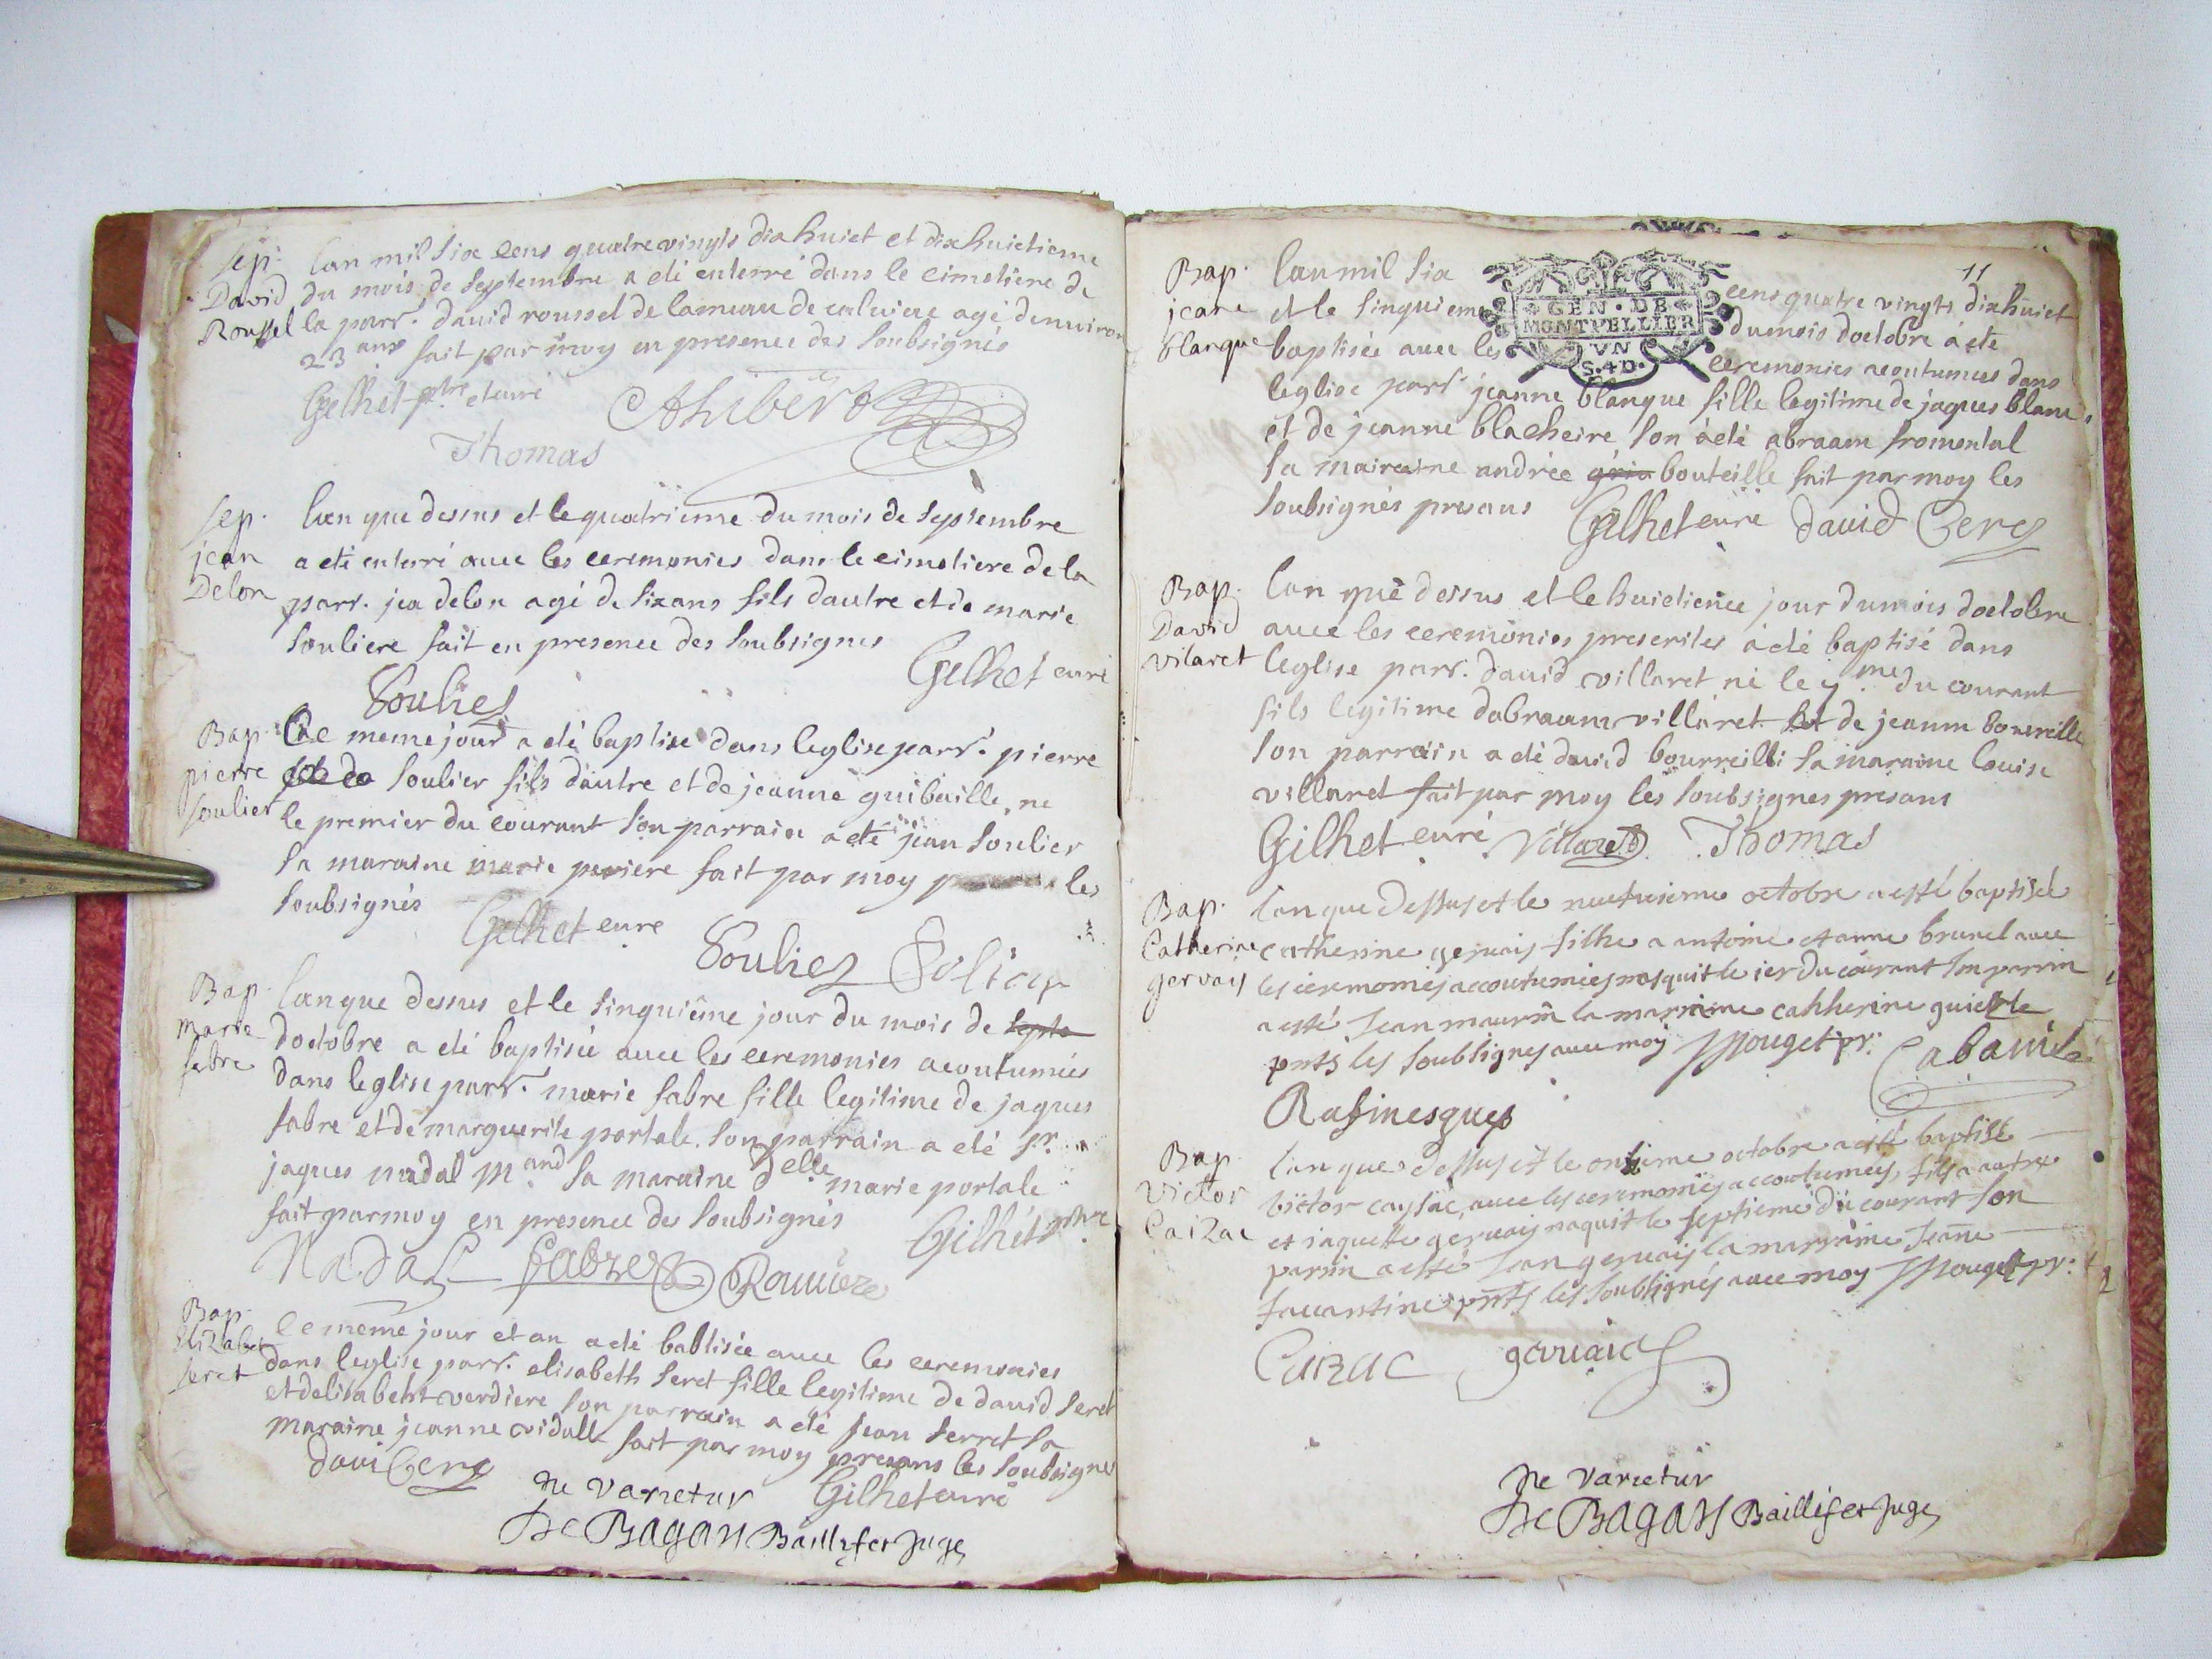 Sep.
David
Roussel
lan mil six cens quatre vingts dix huict et dix huictieme
du mois de septembre a eté enterré dans le cimetiere de
la parr. david roussel de lameau de calviere agé denuiron
23 ans fait par moy en presence des soubsignés
Gelhet ptre et curé
Ahibert
Thomas
Sep.
jean
Delon
lan que dessus et le quatrieme du mois de septembre
a eté enterré auec les ceremonies dans le cimetiere de la
parr. jea delon agé de six ans fils dautre et de marie
souliere fait en presence des soubsignes
Gelhet curé
Soulier
Bap.
pierre
soulier
Le meme jour a eté baptisé dans leglise parr. pierre
soulier fils dautre et de jeanne guibaille ne
le premier du courant son parrain a eté jean soulier
sa maraine marie periere fait par moy les
soubsignés
Gelhet cure
Soulier
Bap.
Marie
fabre
lan que dessus et le sinquieme jour du mois de septe
doctobre a eté baptisée auec les ceremonies acoutumées
dans leglise parr. marie fabre fille legitime de jaques
fabre et de marguerite portale son parrain a eté sr.
jaques nadal mand. sa maraine delle marie portale
fait par moy en presence des soubsignés
Gilhet ptre
Nadal fabre Rouuiere
Bap.
Elizabet
seret
le meme jour et an a eté babtisée auec les ceremonies
dans leglise parr. elisabeth seret fille legitime de dauid seret
et delisabeht verdiere son parrain a eté jean serret sa
maraine jeanne vidalle fait par moy presans les soubsignes
daui Cerey
Gilhet curé
Ne Varietur
De Bagars Baillif et Juge
11
GEN · DE
MONTPELLIER
VN
S. 4 D.
Bap.
jeane
blanque
lan mil six cens quatre vingts dix huict
et le sinquieme du mois doctobre a ete
baptisée auec les ceremonies acoutumees dans
leglise parr. jeanne blanque fille legitime de jaques blanc
et de jeanne blacheire son a eté abraam fromental
sa mairaine andrée bouteille fait par moy les
soubsignés presans
Gilhet curé dauid Cerey
Bap.
David
vilaret
lan que dessus et le huictieme jour du mois doctobre
auec les ceremonies prescrites a eté baptisé dans
leglise parr. dauid villaret né le y me du courant
fils legitime dabraam villaret et de jeanne bourreille
son parrain a eté dauid bourreilli sa maraine louise
villaret fait par moy les soubsignes presans
Gilhet curé Villaret Thomas
Bap.
Catherine
gervais
lan que dessus et le neufuieme octobre a esté baptisée
catherine geruais filhe a antoine et anne brunel auec
les ceremonies accoutumées nasquit le ier du courant son parrin
a esté Jean maurin la marrine cahherine guielle
pnts les soubsignes auec moy Pouget pr. Cabanis
Rafinesques
Bap.
Victor
Caizac
lan que dessus et le onzieme octobre a esté baptisé
victor caysac auec les ceremonies accoutumees, fils a autre
et iaquette geruais naquit le septieme du courant son
parrin a esté Jean geruais la marrine Jeane
fauantine pnts les soubsignés auec moy Pouget pr.
Caizac geruais
Ne Varietur
De Bagars Baillif et Juge